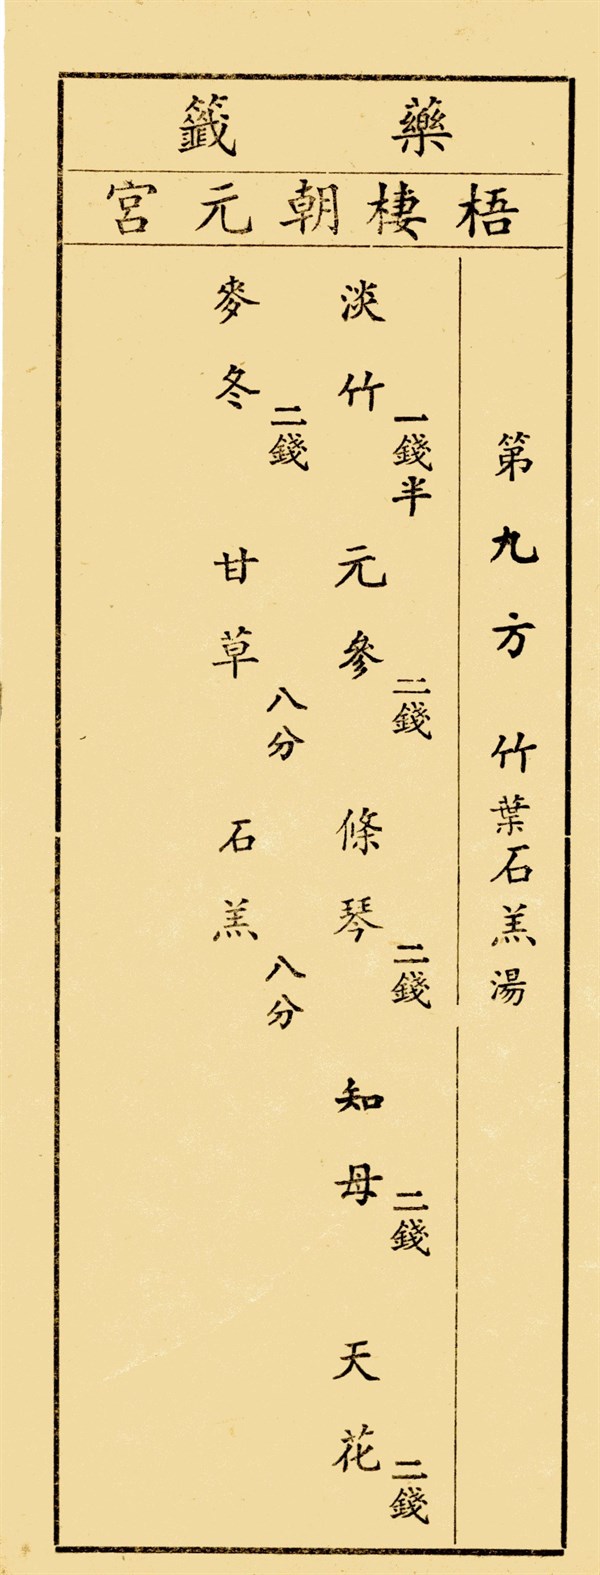 藥籤
梧棲朝元宮
第九方 竹葉石羔湯
淡竹一錢半 元參二錢 條琴二錢 知母二錢 天花二錢
麥冬二錢 甘草八分 石羔八分